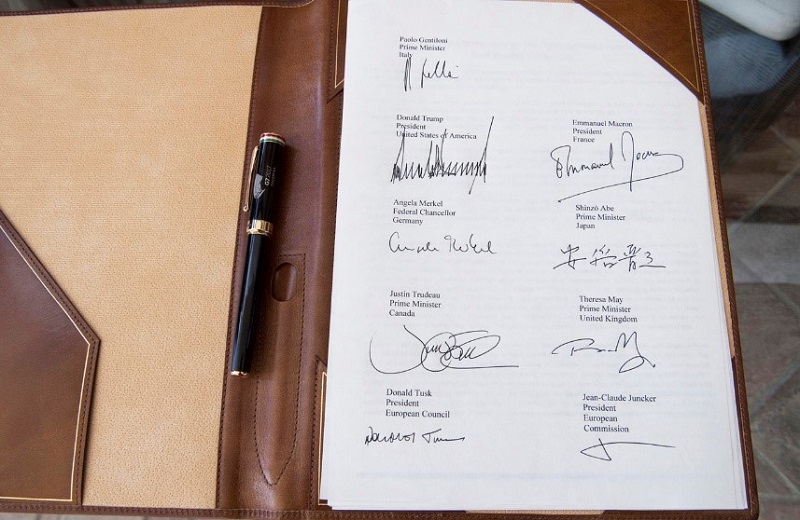 Paolo Gentiloni
Prime Minister
Italy
Donald Trump
President
United States of America
Emmanuel Macron
President
France
Emmanuel Macron
Angela Merkel
Federal Chancellor
Germany
Angela Merkel
Shinzō Abe
Prime Minister
Japan
安倍晋三
Justin Trudeau
Prime Minister
Canada
Theresa May
Prime Minister
United Kingdom
Donald Tusk
President
European Council
Donald Tusk
Jean-Claude Juncker
President
European
Commission
G7